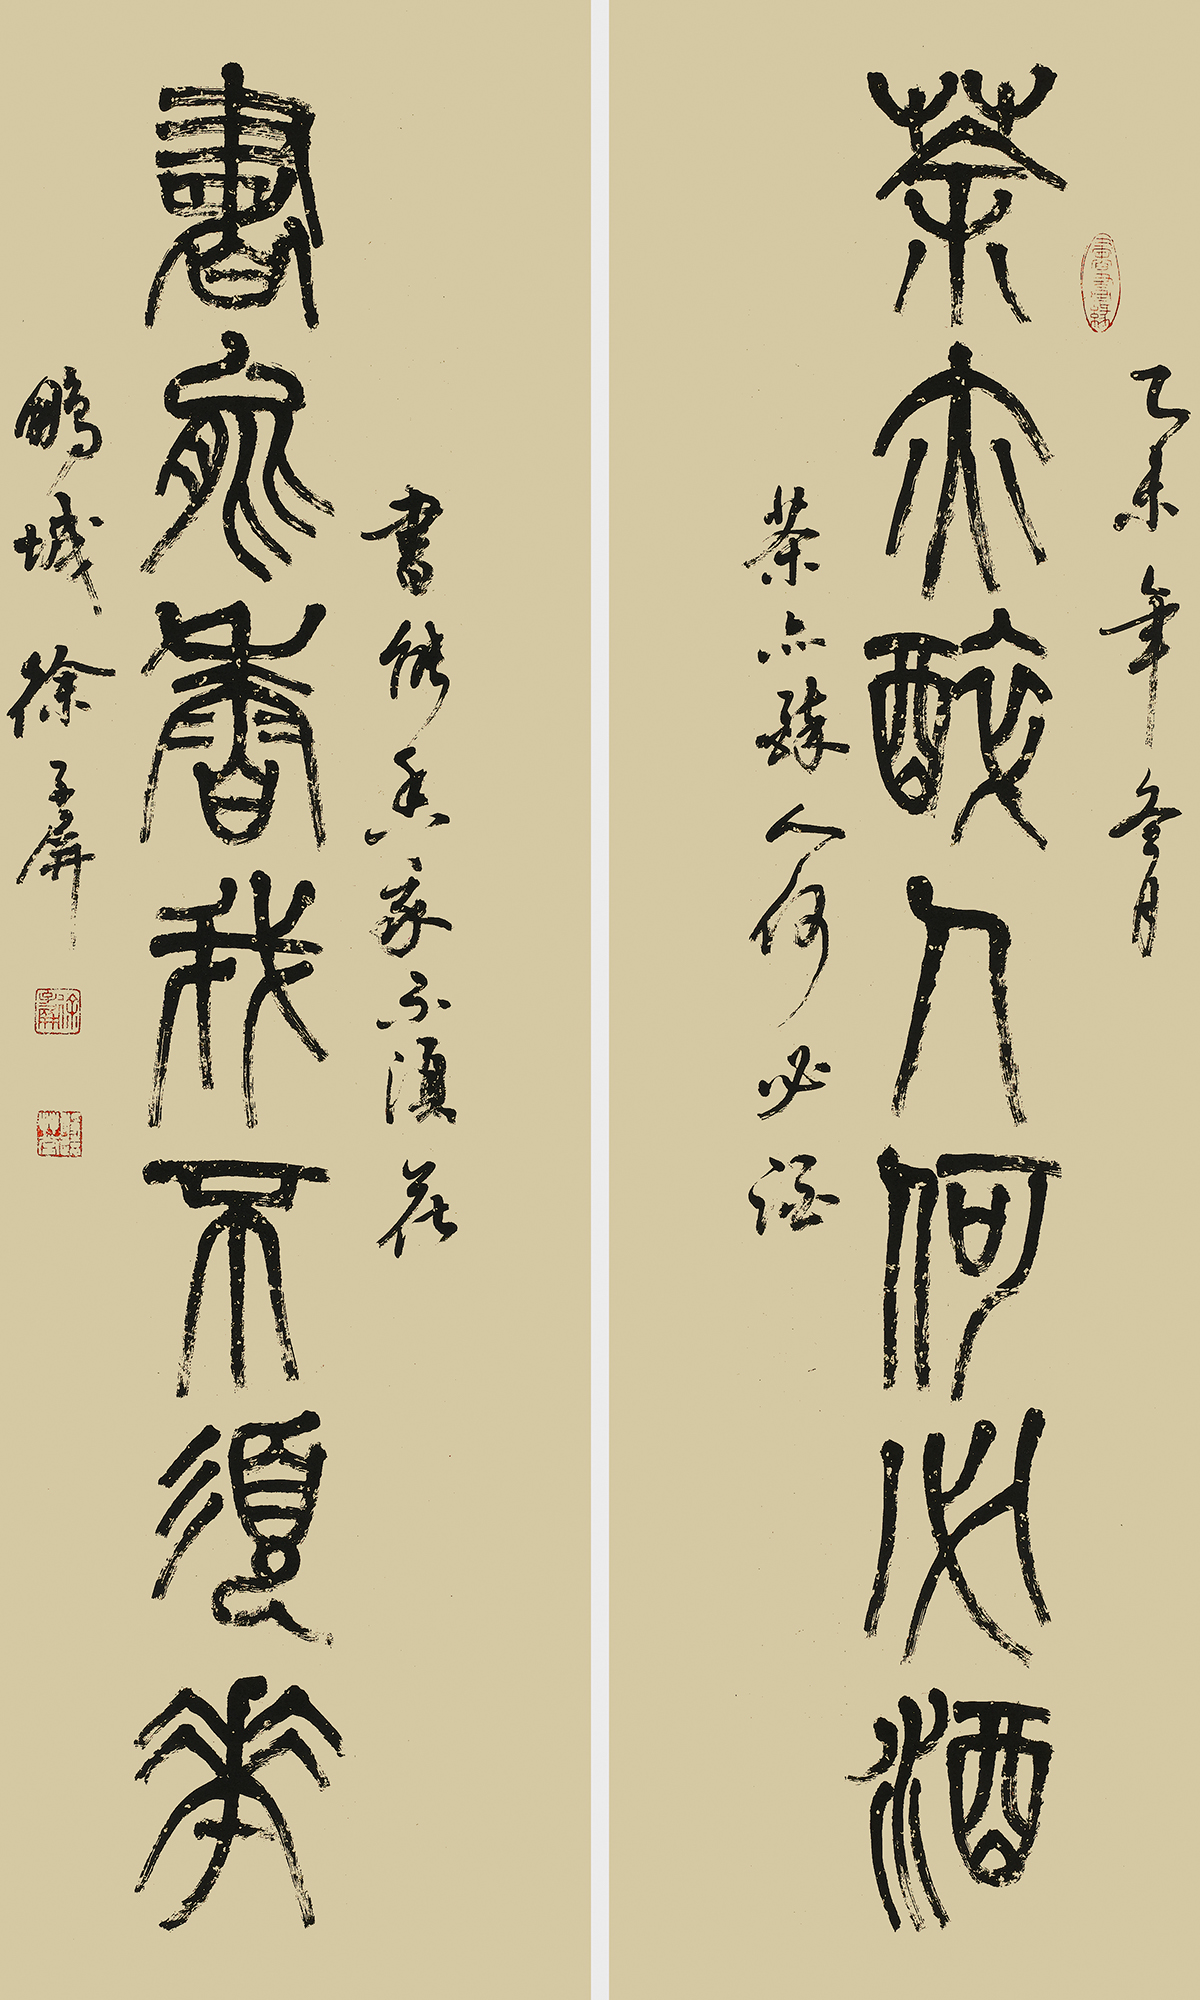 乙未年冬月
茶亦醉人何必酒
茶亦醉人何必酒
書能香我不須花
書能香我不須花
鵬城徐子屏